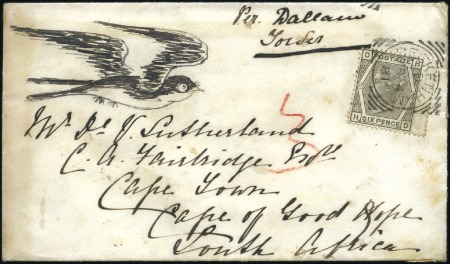 Per. Dallam
Tower
POSTAGE
SIX PENCE
H D
Mr. D. J. Sutherland
C. A. Fairbridge Esqr.
Cape Town
Cape of Good Hope
South Africa